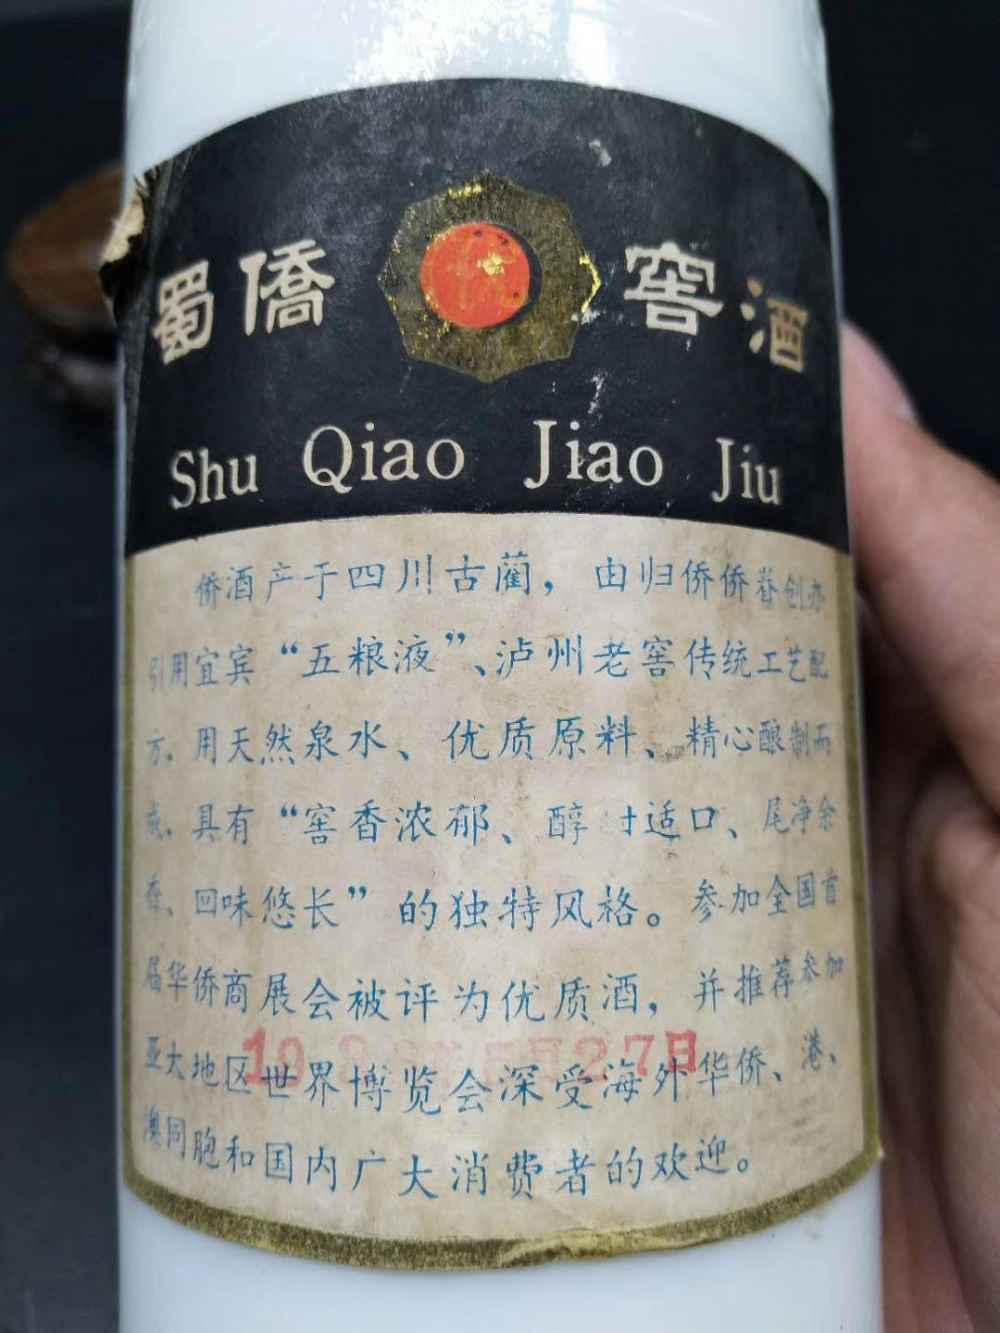 蜀僑 窖酒
Shu Qiao Jiao Jiu
侨酒产于四川古蔺，由归侨侨眷创办
引用宜宾“五粮液”、泸州老窖传统工艺配
方。用天然泉水、优质原料、精心酿制而
成。具有“窖香浓郁、醇 适口、尾净余
香、回味悠长”的独特风格。参加全国首
届华侨商展会被评为优质酒，并推荐参加
亚大地区世界博览会深受海外华侨、港、
澳同胞和国内广大消费者的欢迎。
27日